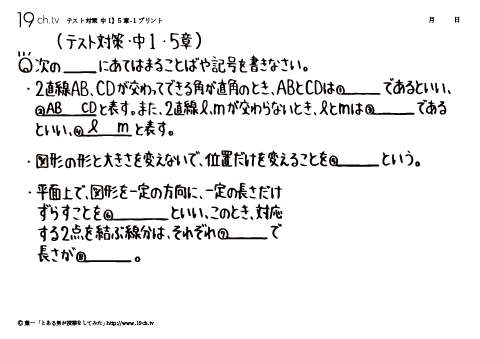 19ch.tv テスト対策 中1】5章-1プリント 月 日
(テスト対策・中1・5章)
Q次の____にあてはまることばや記号を書きなさい。
・2直線AB、CDが交わってできる角が直角のとき、ABとCDは①____であるといい、
②AB CDと表す。また、2直線ℓ、mが交わらないとき、ℓとmは③____である
といい、④ ℓ m と表す。
・図形の形と大きさを変えないで、位置だけを変えることを⑤____という。
・平面上で、図形を一定の方向に、一定の長さだけ
ずらすことを⑥____といい、このとき、対応
する2点を結ぶ線分は、それぞれ⑦____で
長さが⑧____。
©葉一「とある男が授業をしてみた」http://www.19ch.tv